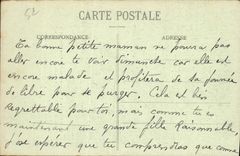 52
CARTE POSTALE
CORRESPONDANCE
ADRESSE
Ta bonne petite maman ne pourra pas
aller encore te voir dimanche car elle est
encore malade et profitera de sa journée
de libre pour se purger. Cela est bien
regrettable pour toi, mais comme tu es
maintenant une grande fille raisonnable,
j'ose espérer que tu comprendras que comme